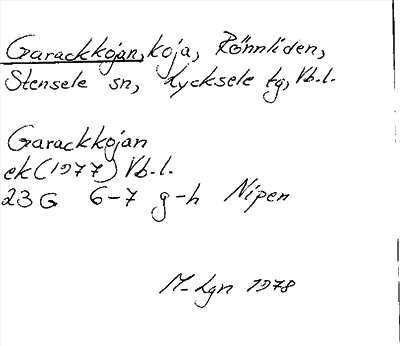 Garackkojan, koja, Rönnliden,
Stensele sn, Lycksele tg, Vb.l.
Garackkojan
ek (1977) Vb.l.
23 G 6-7 g-h Nipen
M-Lgn 1978